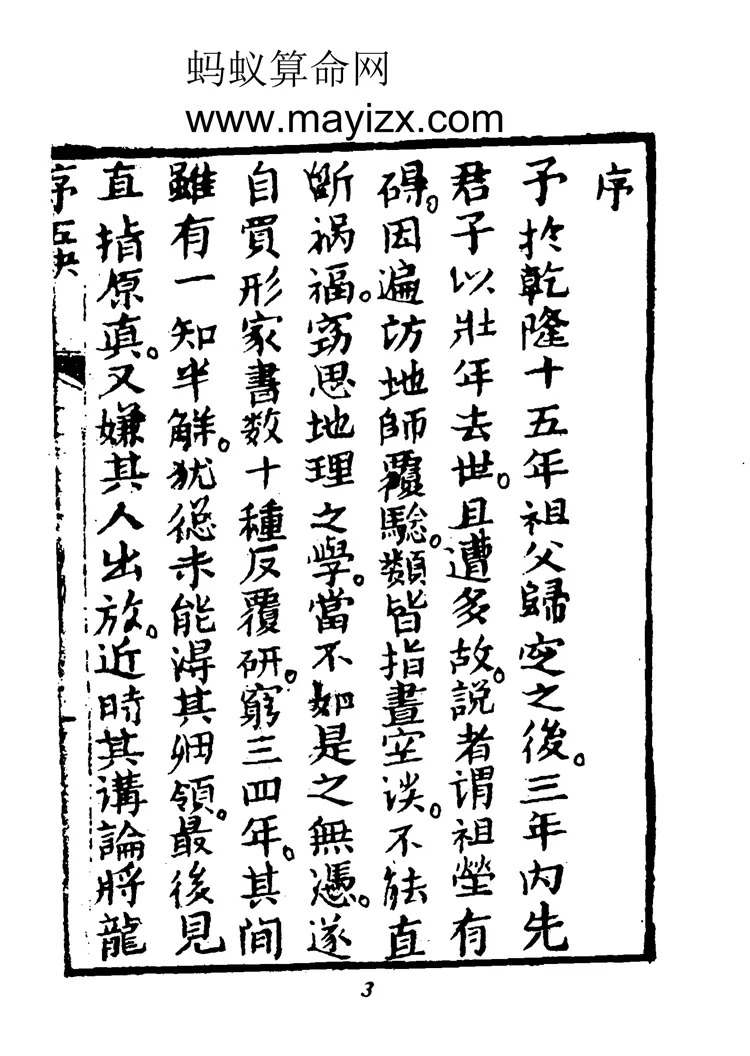 蚂蚁算命网
www.mayizx.com
序
予於乾隆十五年祖父歸窆之後。三年內先
君子以壯年去世。且遭多故。説者謂祖塋有
碍。因遍访地師覆驗。類皆指畫空谈。不能直
斷禍福。窃思地理之學。當不如是之無憑。遂
自買形家書数十種反覆研。窮三四年。其间
雖有一知半解。犹從未能淂其纲領。最後見
直指原真。又嫌其人出放。近時其講論將龍
序
3